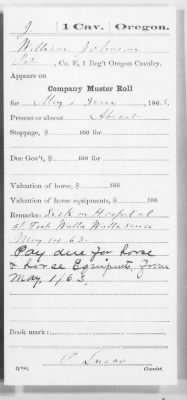 J | 1 Cav. | Oregon.
William Johnson
Pvt., Co. E, 1 Reg't Oregon Cavalry.
Appears on
Company Muster Roll
for May & June, 1863.
Present or absent Absent
Stoppage, $ 100 for
Due Gov't, $ 100 for
Valuation of horse, $ 100
Valuation of horse equipments, $ 100
Remarks: Sick in Hospital
at Fort Walla Walla since
May 14, 63.
Pay due for horse
& horse Equipmts. from
May 1/63.
Book mark:
Lucas
Copyist.